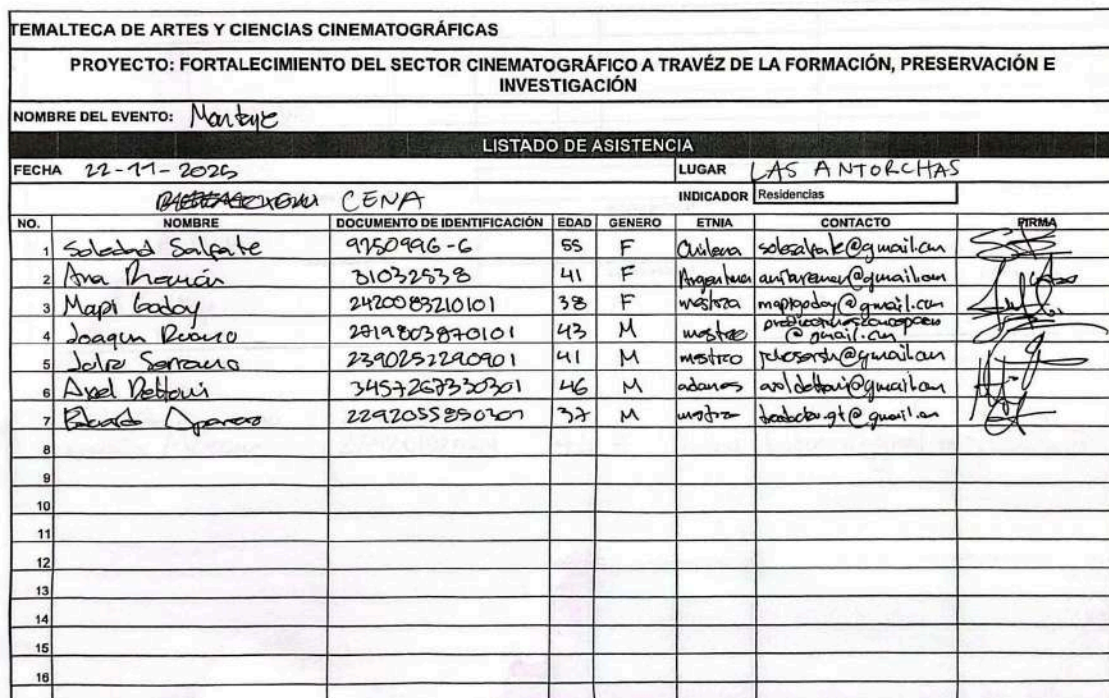 TEMALTECA DE ARTES Y CIENCIAS CINEMATOGRÁFICAS
PROYECTO: FORTALECIMIENTO DEL SECTOR CINEMATOGRÁFICO A TRAVÉZ DE LA FORMACIÓN, PRESERVACIÓN E
INVESTIGACIÓN
NOMBRE DEL EVENTO: Montaje
LISTADO DE ASISTENCIA
FECHA 22-11-2025 LUGAR LAS ANTORCHAS
CENA INDICADOR Residencias
NO. NOMBRE DOCUMENTO DE IDENTIFICACIÓN EDAD GENERO ETNIA CONTACTO FIRMA
1 Soledad Salfate 9750996-6 55 F Chilena solesalfate@gmail.com
2 Ana 31032538 41 F Argentina @gmail.com
3 Mapi Godoy 2420083210101 38 F mestiza mapigodoy@gmail.com
4 Joaquin 2719803870101 43 M mestizo @gmail.com
5 Julio Serrano 2390252290901 41 M mestizo @gmail.com
6 Axel Dettoni 3457267330301 46 M axeldettoni@gmail.com
7 Eduardo 2292055850701 37 M @gmail.com
8
9
10
11
12
13
14
15
16